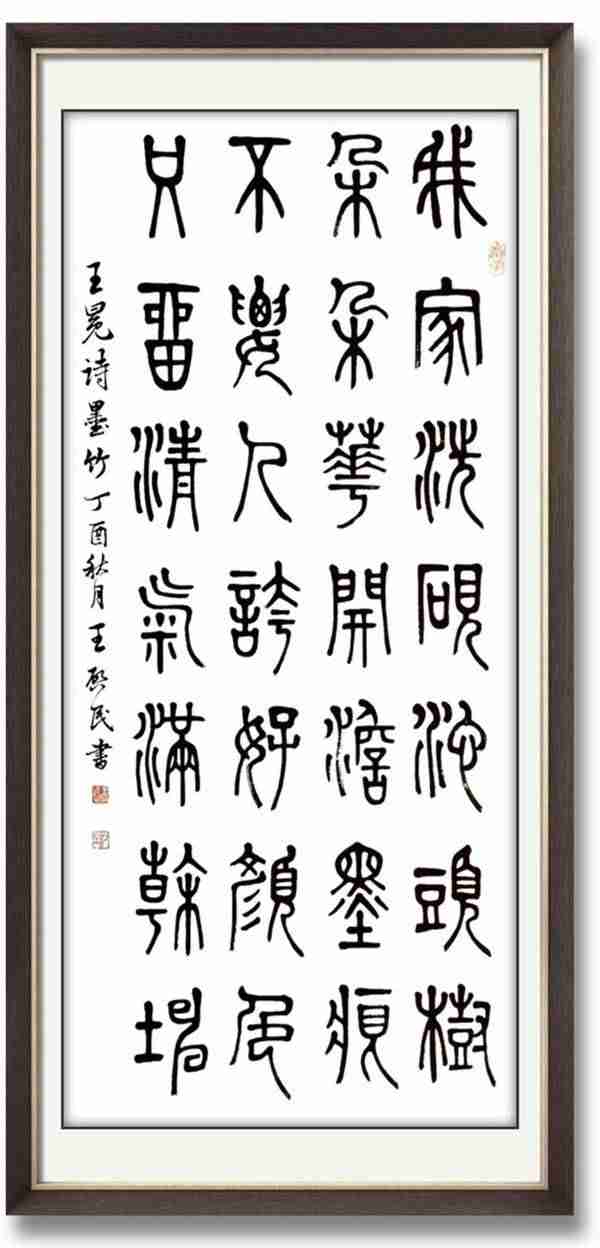 我家洗硯池頭樹
朵朵華開澹墨痕
不要人誇好顏色
只留清氣滿乾坤
王冕诗墨竹丁酉秋月王啟民書